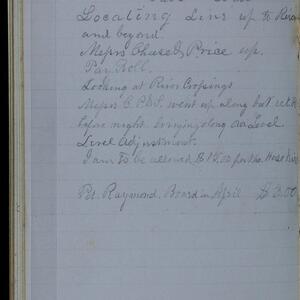 Locating Line up to River
and beyond.
Messrs Chase & Price up.
Pay Roll.
Looking at River Crossings
Messrs C. P. & S. went up along but ret
before night bringing along our Level
Level Adjustment.
I am to be allowed $ for the Horse
Pd. Raymond. Board in April $3.00